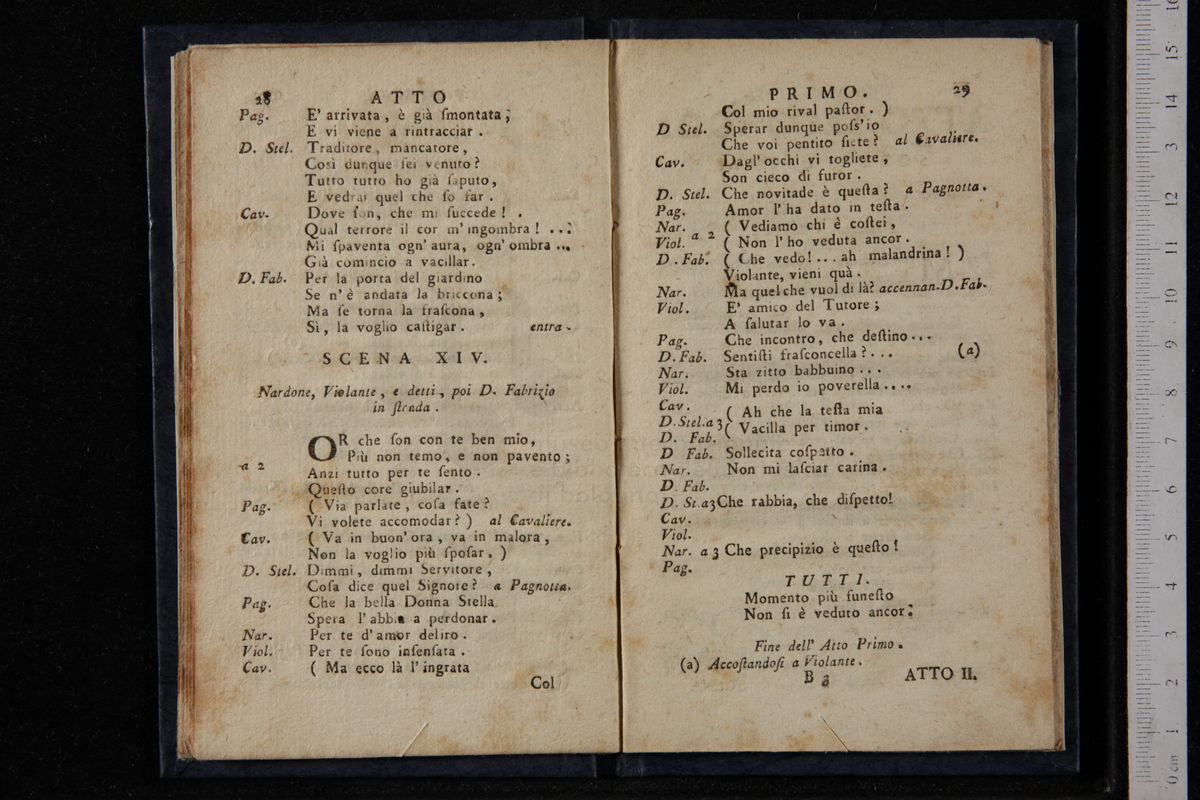 28 ATTO
Pag. E' arrivata, è già ſmontata;
E vi viene a rintracciar.
D. Stel. Traditore, mancatore,
Così dunque ſei venuto?
Tutto tutto ho già ſaputo,
E vedrai quel che ſo far.
Cav. Dove ſon, che mi ſuccede!
Qual terrore il cor m'ingombra! ...
Mi ſpaventa ogn'aura, ogn'ombra ...
Già comincio a vacillar.
D. Fab. Per la porta del giardino
Se n'è andata la briccona;
Ma ſe torna la fraſcona,
Sì, la voglio caſtigar. entra.
SCENA XIV.
Nardone, Violante, e detti, poi D. Fabrizio
in ſtrada.
OR che ſon con te ben mio,
Più non temo, e non pavento;
a 2 Anzi tutto per te ſento.
Queſto core giubilar.
Pag. ( Via parlate, coſa fate?
Vi volete accomodar? ) al Cavaliere.
Cav. ( Va in buon'ora, va in malora,
Non la voglio più ſpoſar. )
D. Stel. Dimmi, dimmi Servitore,
Coſa dice quel Signore? a Pagnotta.
Pag. Che la bella Donna Stella
Spera l'abbia a perdonar.
Nar. Per te d'amor deliro.
Viol. Per te ſono inſenſata.
Cav. ( Ma ecco là l'ingrata
Col
PRIMO. 29
Col mio rival paſtor. )
D Stel. Sperar dunque poſs'io
Che voi pentito ſiete? al Cavaliere.
Cav. Dagl'occhi vi togliete,
Son cieco di furor.
D. Stel. Che novitade è queſta? a Pagnotta.
Pag. Amor l'ha dato in teſta.
Nar. ( Vediamo chi è coſtei,
Viol. a 2 ( Non l'ho veduta ancor.
D. Fab. ( Che vedo! ... ah malandrina! )
Violante, vieni quà.
Nar. Ma quel che vuol di là? accennan. D. Fab.
Viol. E' amico del Tutore;
A ſalutar lo va.
Pag. Che incontro, che deſtino...
D. Fab. Sentiſti fraſconcella? ... (a)
Nar. Sta zitto babbuino ...
Viol. Mi perdo io poverella ....
Cav. ( Ah che la teſta mia
D. Stel. a 3 ( Vacilla per timor.
D. Fab.
D Fab. Sollecita coſpetto.
Nar. Non mi laſciar carina.
D. Fab.
D. St. a 3 Che rabbia, che diſpetto!
Cav.
Viol.
Nar. a 3 Che precipizio è queſto!
Pag.
TUTTI.
Momento più funeſto
Non ſi è veduto ancor.
Fine dell' Atto Primo.
(a) Accoſtandoſi a Violante.
B 3 ATTO II.
0 cm 1 2 3 4 5 6 7 8 9 10 11 12 13 14 15 16